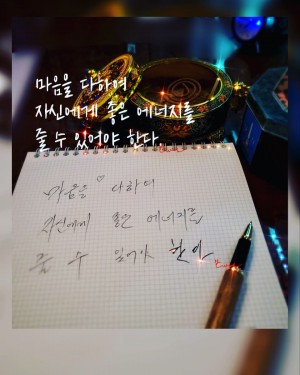 마음을 다하여
자신에게 좋은 에너지를
줄 수 있어야 한다.
마음을 다하여
자신에게 좋은 에너지를
줄 수 있어야 한다